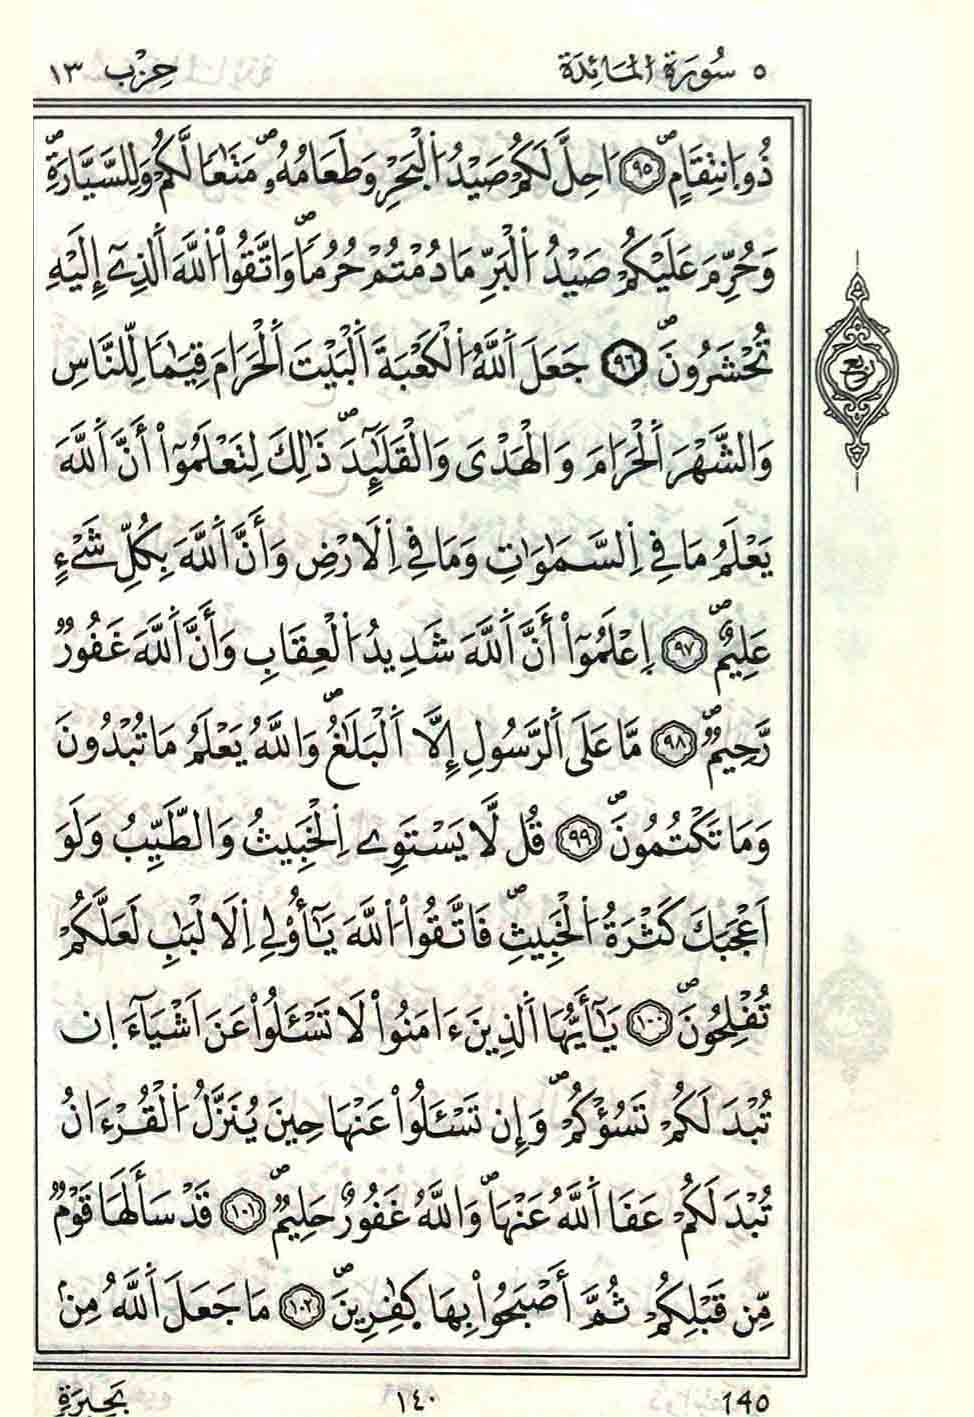 ٥ سُورَةُ الْمَائِدَة حِزْب ١٣
ذُو اُ۪نتِقَامٍۖ ٩٥ اُحِلَّ لَكُمْ صَيْدُ اُ۬لْبَحْرِ وَطَعَامُهُۥۖ مَتَٰعاٗ لَّكُمْ وَلِلسَّيَّارَةِۖ
وَحُرِّمَ عَلَيْكُمْ صَيْدُ اُ۬لْبَرِّ مَا دُمْتُمْ حُرُماٗۖ وَاتَّقُواْ اُ۬للَّهَ اَ۬لَّذِےٓ إِلَيْهِ
تُحْشَرُونَۖ ٩٦ جَعَلَ اَ۬للَّهُ اُ۬لْكَعْبَةَ اَ۬لْبَيْتَ اَ۬لْحَرَامَ قِيَٰماٗ لِّلنَّاسِ
وَالشَّهْرَ اَ۬لْحَرَامَ وَالْهَدْىَ وَالْقَلَٰٓئِدَۖ ذَٰلِكَ لِتَعْلَمُوٓاْ أَنَّ اَ۬للَّهَ
يَعْلَمُ مَا فِے اِ۬لسَّمَٰوَٰتِ وَمَا فِے اِ۬لَارْضِ وَأَنَّ اَ۬للَّهَ بِكُلِّ شَےْءٍ
عَلِيمٌۖ ٩٧ اِ۪عْلَمُوٓاْ أَنَّ اَ۬للَّهَ شَدِيدُ اُ۬لْعِقَابِ وَأَنَّ اَ۬للَّهَ غَفُورٞ
رَّحِيمٞۖ ٩٨ مَّا عَلَى اَ۬لرَّسُولِ إِلَّا اَ۬لْبَلَٰغُۖ وَاللَّهُ يَعْلَمُ مَا تُبْدُونَ
وَمَا تَكْتُمُونَۖ ٩٩ قُل لَّا يَسْتَوِے اِ۬لْخَبِيثُ وَالطَّيِّبُ وَلَوَ
اَعْجَبَكَ كَثْرَةُ اُ۬لْخَبِيثِۖ فَاتَّقُواْ اُ۬للَّهَ يَٰٓأُوْلِے اِ۬لَالْبَٰبِ لَعَلَّكُمْ
تُفْلِحُونَۖ ١٠٠ يَٰٓأَيُّهَا اَ۬لذِينَ ءَامَنُواْ لَا تَسْـَٔلُواْ عَنَ اَشْيَآءَ اِ۪ن
تُبْدَ لَكُمْ تَسُؤْكُمْۖ وَإِن تَسْـَٔلُواْ عَنْهَا حِينَ يُنَزَّلُ اُ۬لْقُرْءَانُ
تُبْدَ لَكُمْ عَفَا اَ۬للَّهُ عَنْهَاۖ وَاللَّهُ غَفُورٌ حَلِيمٞۖ ١٠١ قَدْ سَأَلَهَا قَوْمٞ
مِّن قَبْلِكُمْ ثُمَّ أَصْبَحُواْ بِهَا كَٰفِرِينَۖ ١٠٢ مَا جَعَلَ اَ۬للَّهُ مِنۢ
ربع
145 ١٤٠ بَحِيرَةٖ